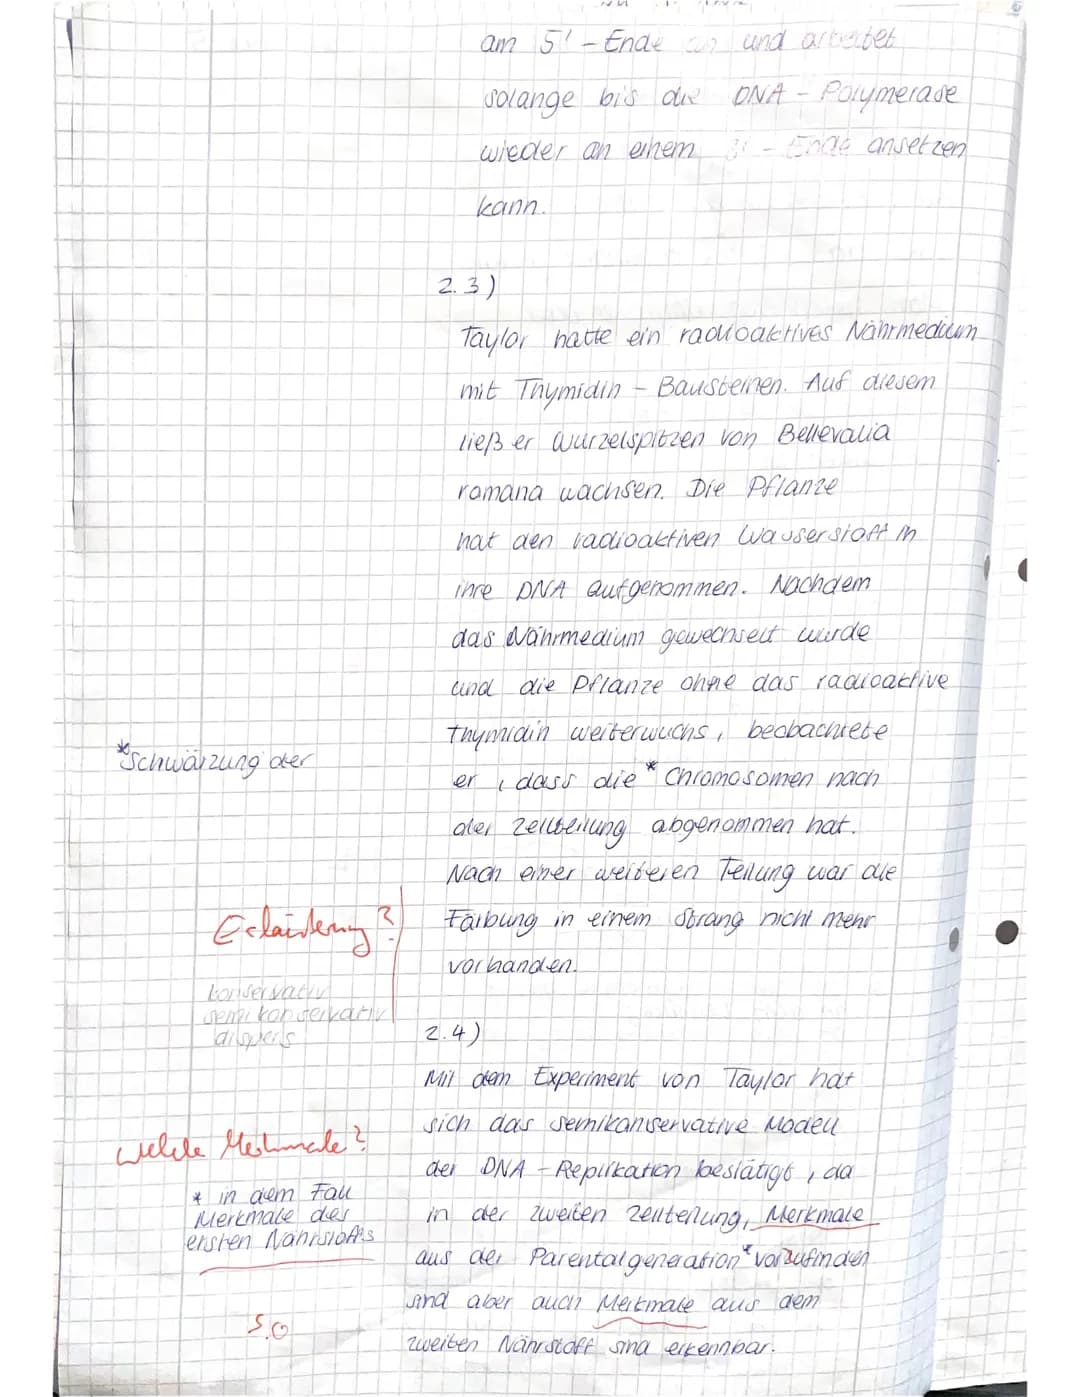 am 5' - Ende an und arbeitet
solange bis die DNA - Polymerase
wieder an einem 3' - Ende ansetzen
kann.
2.3)
Taylor hatte ein radioaktives Nährmedium
mit Thymidin - Bausteinen. Auf diesem
ließ er Wurzelspitzen von Bellevalia
romana wachsen. Die Pflanze
hat den radioaktiven Wasserstoff in
ihre DNA aufgenommen. Nachdem
das Nährmedium gewechselt wurde
und die Pflanze ohne das radioaktive
Thymidin weiterwuchs, beobachtete
*Schwärzung der
er, dass die * Chromosomen nach
der Zellteilung abgenommen hat.
Nach einer weiteren Teilung war die
Färbung in einem Strang nicht mehr
vorhanden.
Erläuterung?
konservativ
semikonservativ
dispers
2.4)
Mit dem Experiment von Taylor hat
sich das semikonservative Modell
der DNA - Replikation bestätigt, da
in der zweiten Zellteilung, Merkmale
aus der Parentalgeneration* vorzufinden
sind aber auch Merkmale aus dem
zweiten Nährstoff sind erkennbar.
welche Merkmale?
* in dem Fall
Merkmale des
ersten Nährstoffs
s.o